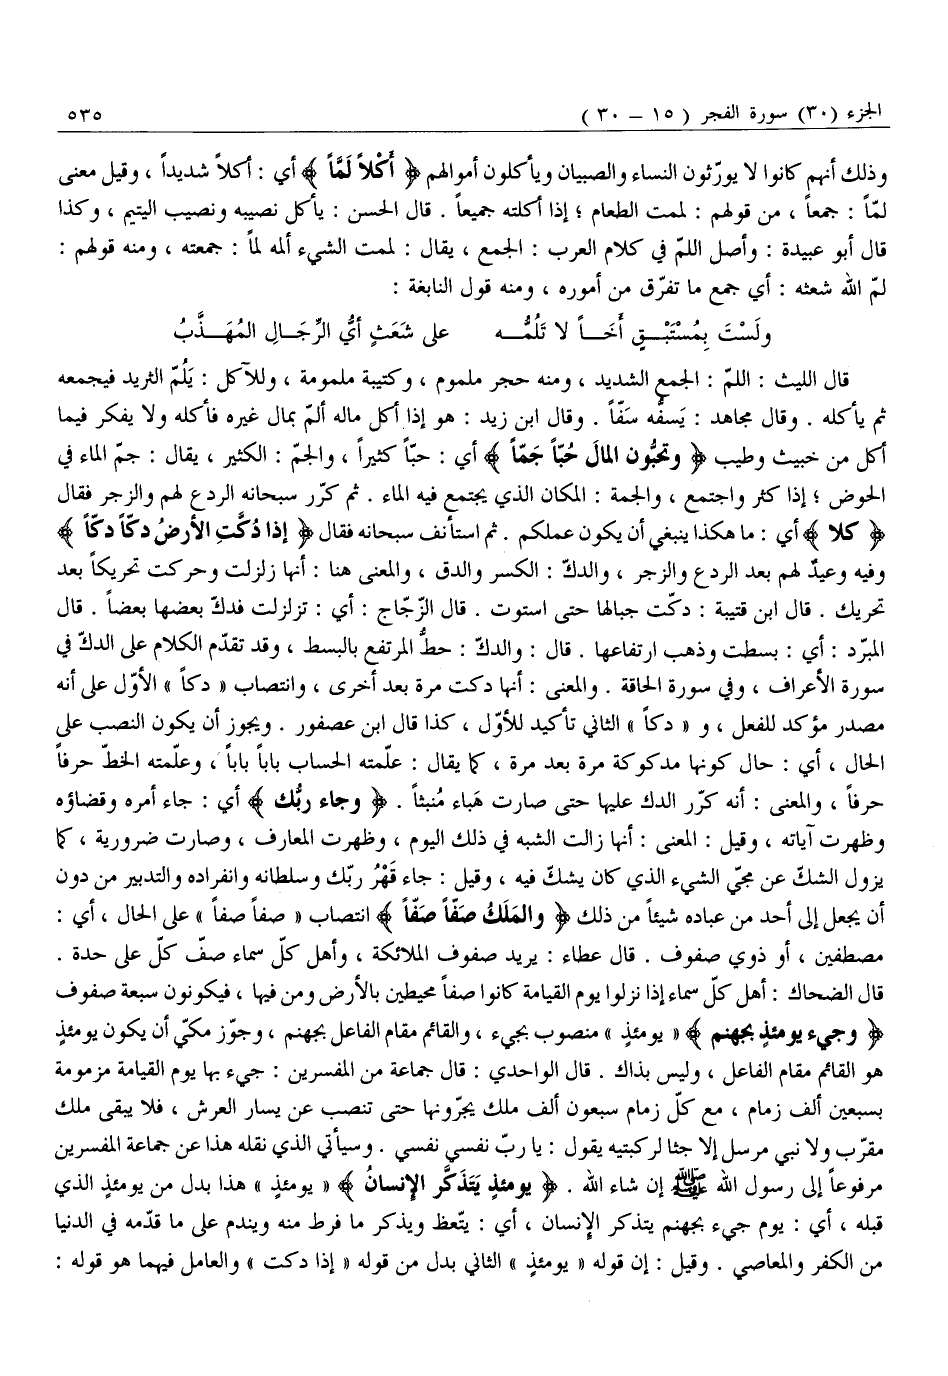 الجزء (٣٠) سورة الفجر ( ١٥ – ٣٠ ) ٥٣٥
وذلك أنهم كانوا لا يورّثون النساء والصبيان ويأكلون أموالهم ﴿ أَكْلاً لَمَّاً ﴾ أي : أكلاً شديداً ، وقيل معنى
لمّاً : جمعاً ، من قولهم : لممت الطعام ؛ إذا أكلته جميعاً . قال الحسن : يأكل نصيبه ونصيب اليتيم ، وكذا
قال أبو عبيدة : وأصل اللمّ في كلام العرب : الجمع ، يقال : لممت الشيء ألمه لماً : جمعته ، ومنه قولهم :
لمّ الله شعثه : أي جمع ما تفرّق من أموره ، ومنه قول النابغة :
ولَسْتَ بِمُسْتَبْقٍ أَخَاً لا تَلُمُّه على شَعَثٍ أيُّ الرِّجَالِ المُهَذَّبُ
قال الليث : اللمّ : الجمع الشديد ، ومنه حجر ملموم ، وكتيبة ملمومة ، وللآكل : يَلُمّ الثريد فيجمعه
ثم يأكله . وقال مجاهد : يَسفّه سَفّاً . وقال ابن زيد : هو إذا أكل ماله ألمّ بمال غيره فأكله ولا يفكر فيما
أكل من خبيث وطيب ﴿ وتحبُّون المالَ حُبّاً جَمّاً ﴾ أي : حبّاً كثيراً ، والجمّ : الكثير ، يقال : جمّ الماء في
الحوض ؛ إذا كثر واجتمع ، والجمة : المكان الذي يجتمع فيه الماء . ثم كرّر سبحانه الردع لهم والزجر فقال
﴿ كلا ﴾ أي : ما هكذا ينبغي أن يكون عملكم . ثم استأنف سبحانه فقال ﴿ إذا دُكَّتِ الأرضُ دكّاً دكّاً ﴾
وفيه وعيدٌ لهم بعد الردع والزجر ، والدكّ : الكسر والدق ، والمعنى هنا : أنها زلزلت وحركت تحريكاً بعد
تحريك . قال ابن قتيبة : دكّت جبالها حتى استوت . قال الزّجّاج : أي : تزلزلت فدكّ بعضها بعضاً . قال
المبرّد : أي : بسطت وذهب ارتفاعها . قال : والدكّ : حطُّ المرتفع بالبسط ، وقد تقدّم الكلام على الدكّ في
سورة الأعراف ، وفي سورة الحاقة . والمعنى : أنها دكت مرة بعد أخرى ، وانتصاب « دكاً » الأوّل على أنه
مصدر مؤكد للفعل ، و « دكاً » الثاني تأكيد للأوّل ، كذا قال ابن عصفور . ويجوز أن يكون النصب على
الحال ، أي : حال كونها مدكوكة مرة بعد مرة ، كما يقال : علّمته الحساب باباً باباً ، وعلّمته الخطّ حرفاً
حرفاً ، والمعنى : أنه كرّر الدك عليها حتى صارت هَباء مُنبثاً . ﴿ وجاء ربُّك ﴾ أي : جاء أمره وقضاؤه
وظهرت آياته ، وقيل : المعنى : أنها زالت الشبه في ذلك اليوم ، وظهرت المعارف ، وصارت ضرورية ، كما
يزول الشكّ عن مجيّ الشيء الذي كان يشكّ فيه ، وقيل : جاء قَهْرُ ربّك وسلطانه وانفراده والتدبير من دون
أن يجعل إلى أحد من عباده شيئاً من ذلك ﴿ والمَلَكُ صَفّاً صَفّاً ﴾ انتصاب « صفاً صفاً » على الحال ، أي :
مصطفين ، أو ذوي صفوف . قال عطاء : يريد صفوف الملائكة ، وأهل كلّ سماء صفّ كلّ على حدة .
قال الضحاك : أهل كلّ سماء إذا نزلوا يوم القيامة كانوا صفاً محيطين بالأرض ومن فيها ، فيكونون سبعة صفوف
﴿ وجيء يومئذٍ بجهنم ﴾ « يومئذٍ » منصوب بجيء ، والقائم مقام الفاعل بجهنم ، وجوّز مكيّ أن يكون يومئذٍ
هو القائم مقام الفاعل ، وليس بذاك . قال الواحدي : قال جماعة من المفسرين : جيء بها يوم القيامة مزمومة
بسبعين ألف زمام ، مع كلّ زمام سبعون ألف ملك يجرّونها حتى تنصب عن يسار العرش ، فلا يبقى ملك
مقرّب ولا نبي مرسل إلا جثا لركبتيه يقول : يا ربّ نفسي نفسي . وسيأتي الذي نقله هذا عن جماعة المفسرين
مرفوعاً إلى رسول الله ﷺ إن شاء الله . ﴿ يومئذٍ يَتَذكَّر الإنسانُ ﴾ « يومئذٍ » هذا بدل من يومئذٍ الذي
قبله ، أي : يوم جيء بجهنم يتذكر الإنسان ، أي : يتّعظ ويذكر ما فرط منه ويندم على ما قدّمه في الدنيا
من الكفر والمعاصي . وقيل : إن قوله « يومئذٍ » الثاني بدل من قوله « إذا دكت » والعامل فيهما هو قوله :